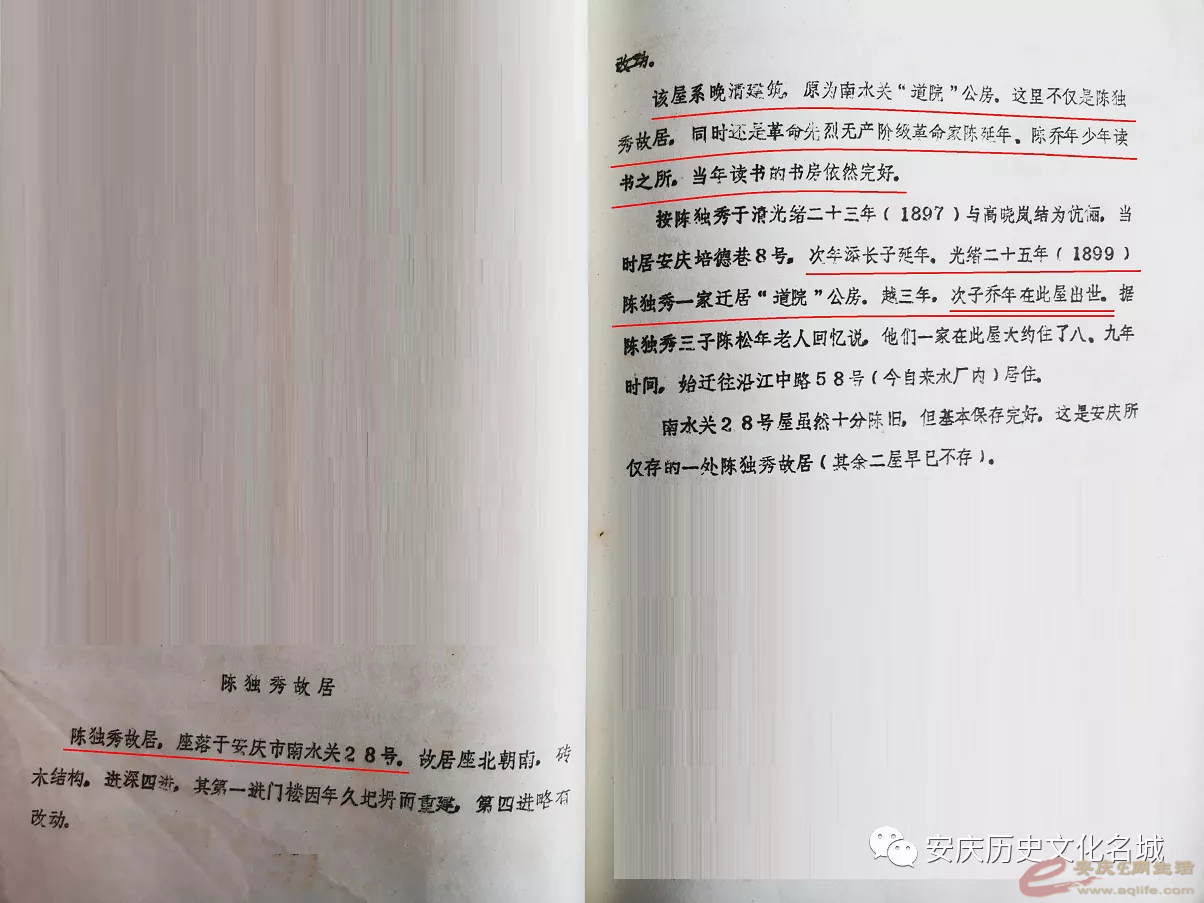 陈独秀故居
陈独秀故居，座落于安庆市南水关28号。故居座北朝南，砖
木结构。进深四进，其第一进门楼因年久圮坍而重建，第四进略有
改动。
改动。
该屋系晚清建筑，原为南水关“道院”公房。这里不仅是陈独
秀故居，同时还是革命先烈无产阶级革命家陈延年、陈乔年少年读
书之所。当年读书的书房依然完好。
按陈独秀于清光绪二十三年（1897）与高晓岚结为伉俪，当
时居安庆培德巷8号。次年添长子延年。光绪二十五年（1899）
陈独秀一家迁居“道院”公房。越三年，次子乔年在此屋出世。据
陈独秀三子陈松年老人回忆说，他们一家在此屋大约住了八、九年
时间，始迁往沿江中路58号（今自来水厂内）居住。
南水关28号屋虽然十分陈旧，但基本保存完好。这是安庆所
仅存的一处陈独秀故居（其余二屋早已不存）。
安庆历史文化名城
安庆E网生活
www.aqlife.com